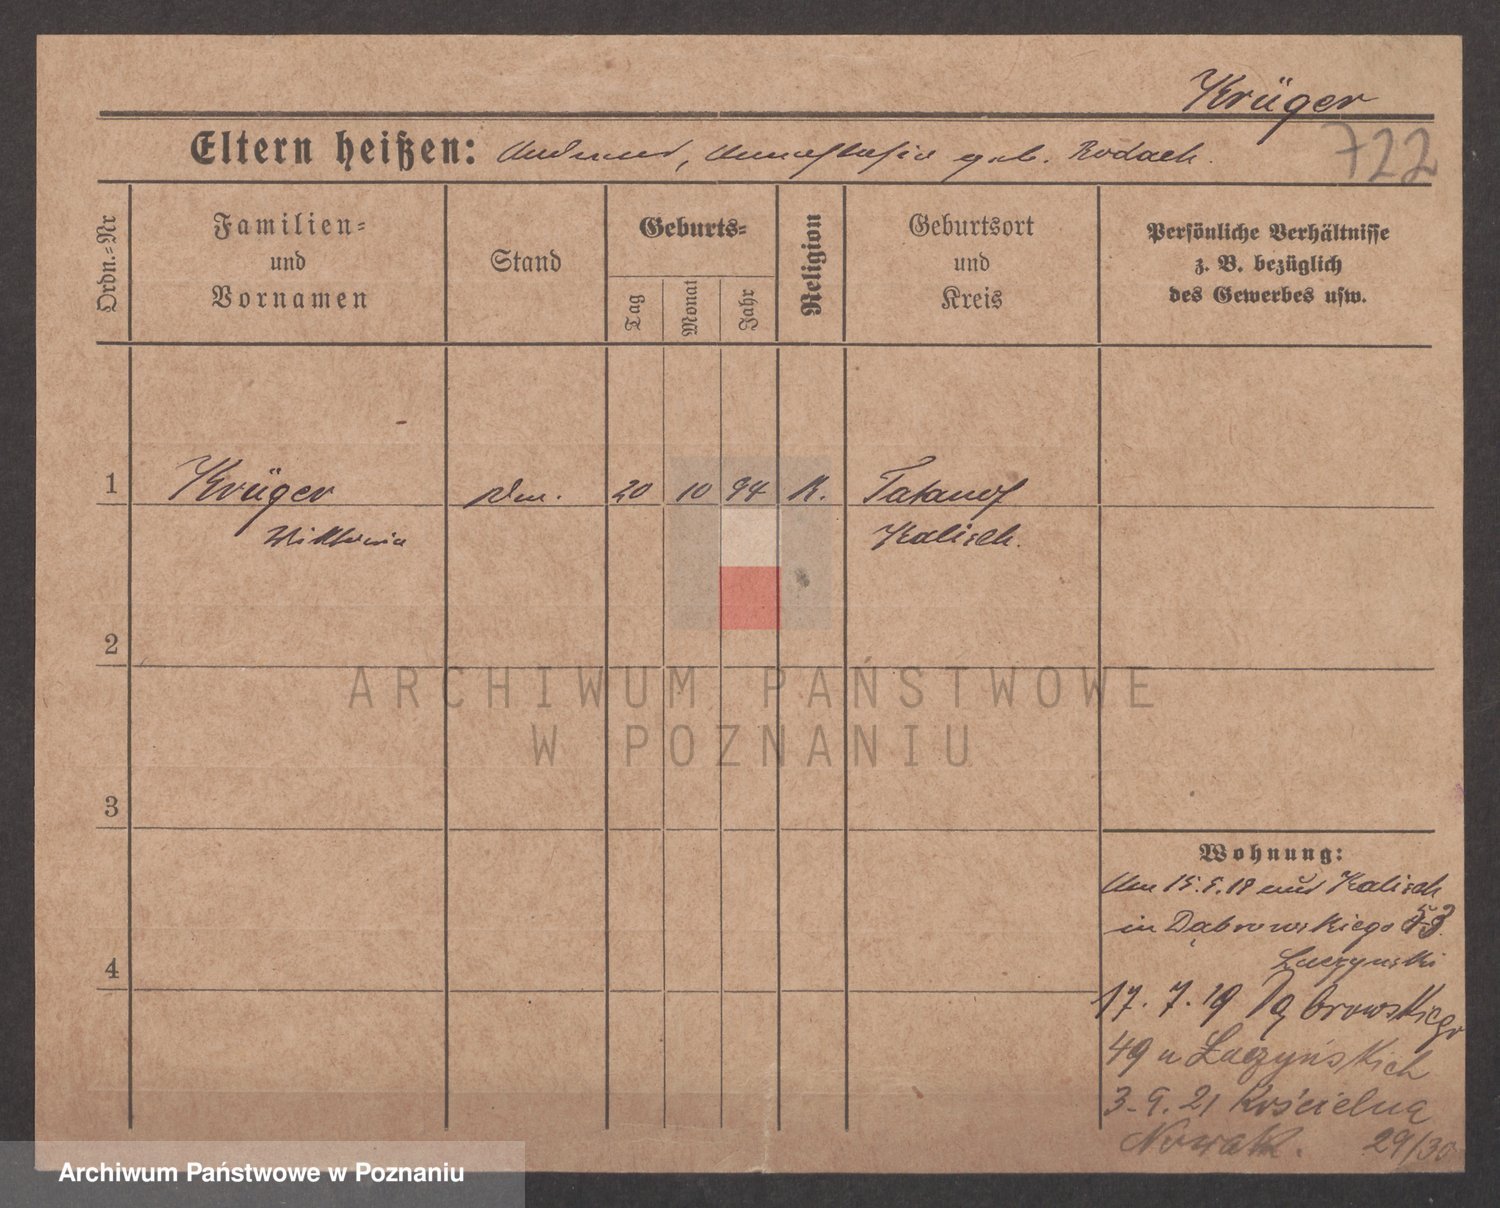 Krüger
722
Eltern heißen: geb. Rodach.
Ordn.-Nr
Familien-
und
Vornamen
Stand
Geburts-
Tag
Monat
Jahr
Religion
Geburtsort
und
Kreis
Persönliche Verhältnisse
z. B. bezüglich
des Gewerbes usw.
1 Krüger 20 10 94 K.
Kalisch.
2
3
4
Wohnung:
Kalisch
in Dąbrowskiego
Łuczynski
17. 7. 19 Dąbrowskiego
49 u Łuczyńskich
3. 9. 21 Kościelna
Nowak. 29/30
ARCHIWUM PAŃSTWOWE
W POZNANIU
Archiwum Państwowe w Poznaniu